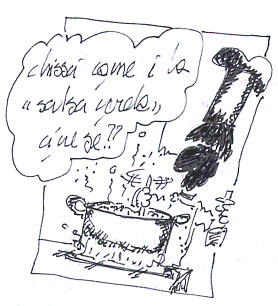 chissà come è la
«salsa verde»
cinese??